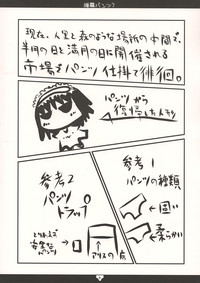 現在、人里と森のような場所の中間で、
半月の日と満月の日に開催される
市場をパンツ仕掛で徘徊。
パンツから
参考1
パンツの種類
固い
柔らかい
参考2
パンツ
トラップ
とりあえず
安全な
パンツ
アリスの家